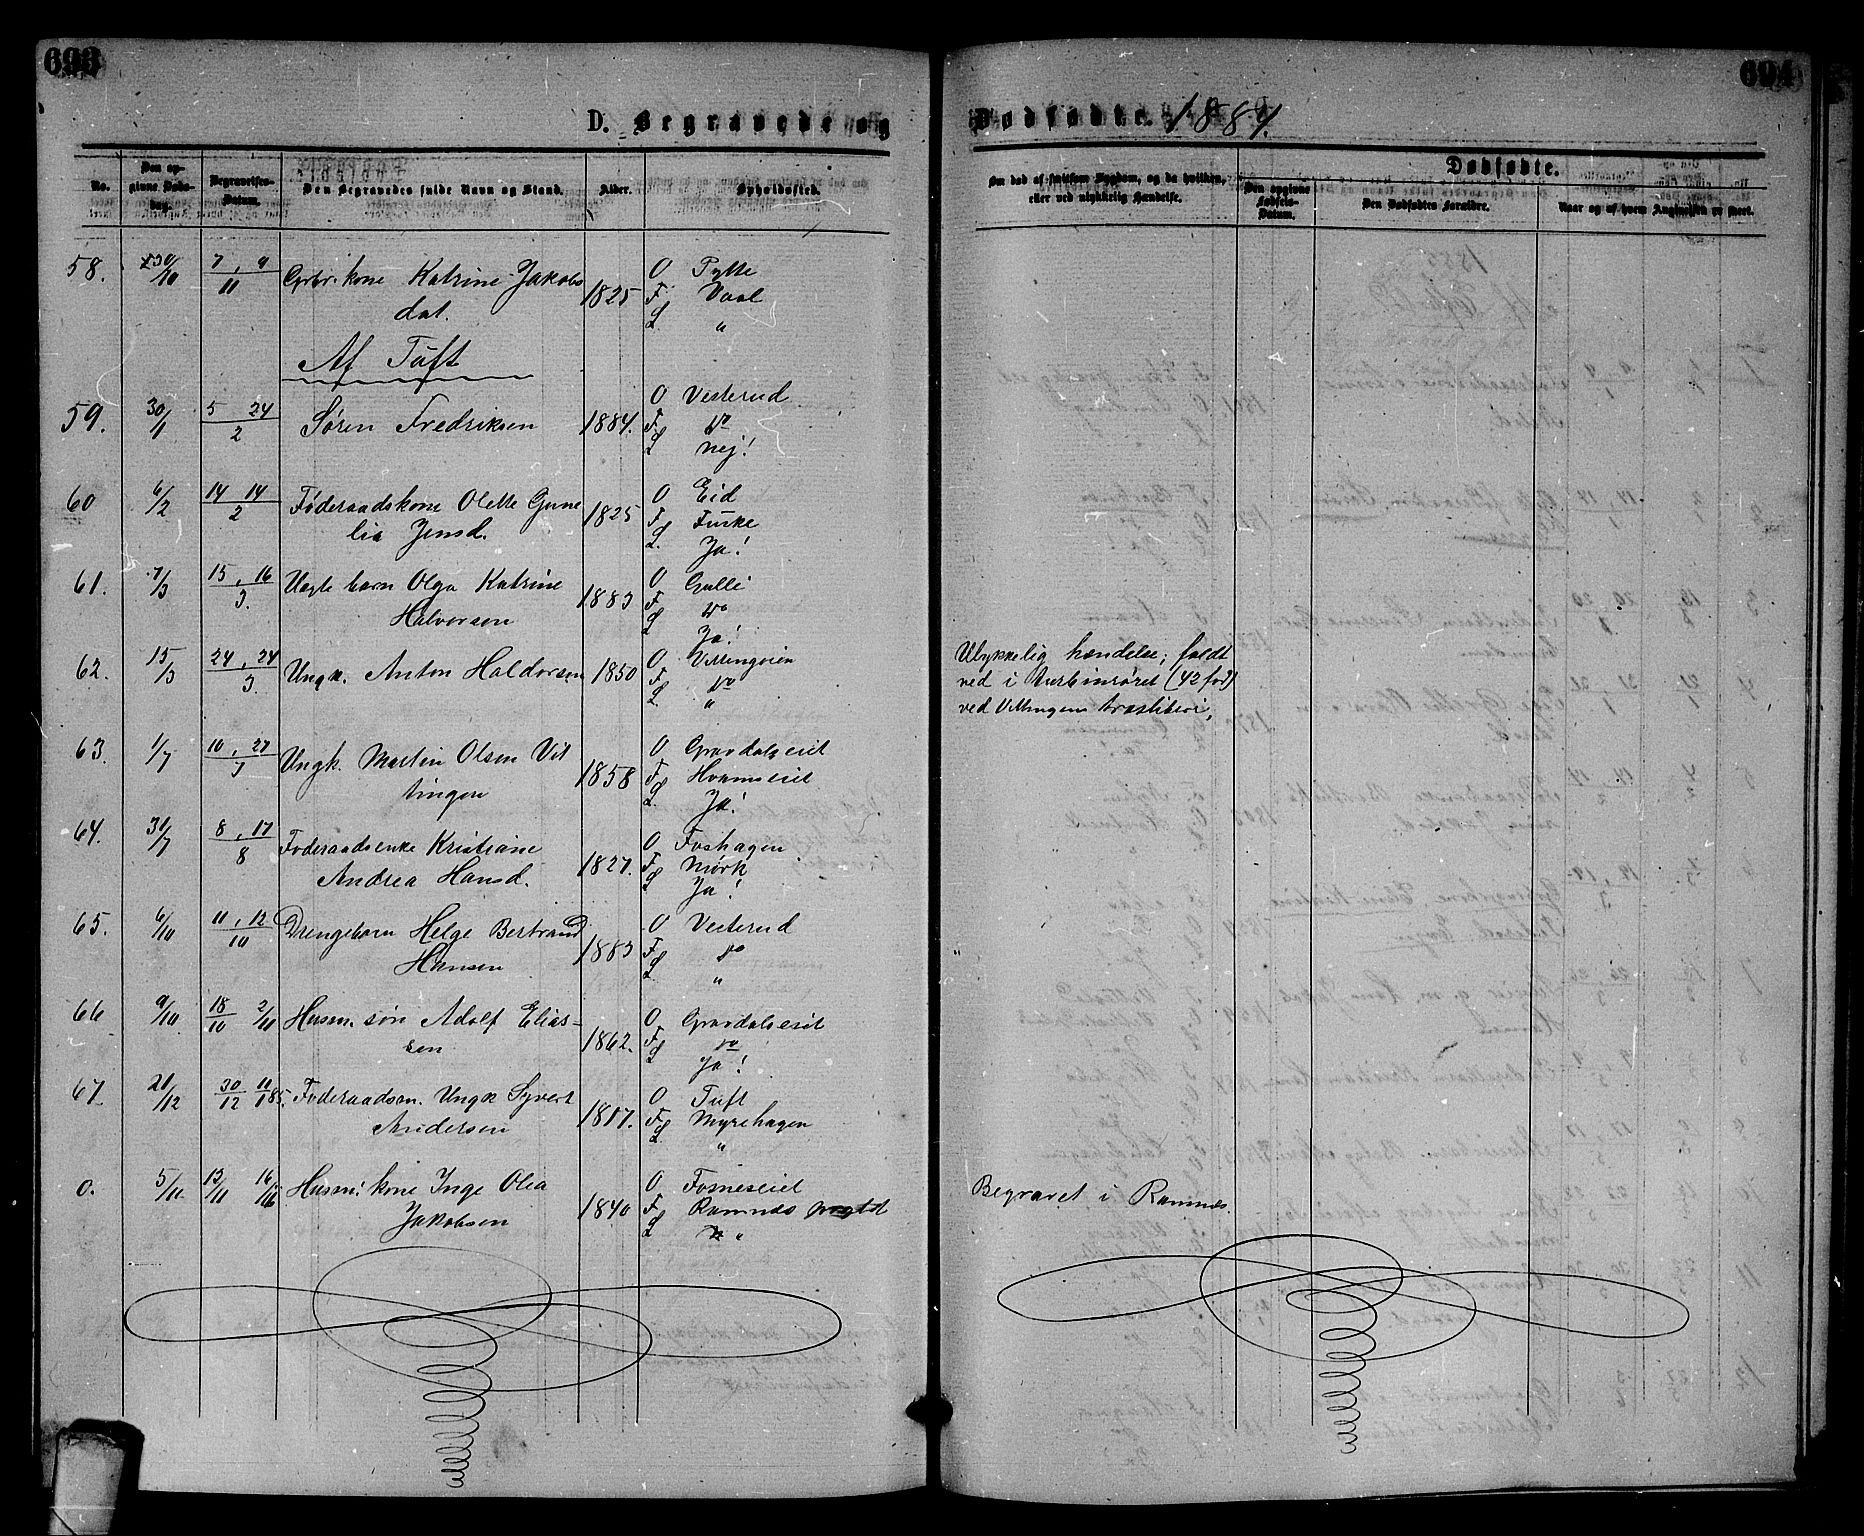 693
694
D. Begravede og
Dødfødte. 1884.
No.
Den opgivne Dødsdag.
Begravelses-Datum.
Den Begravedes fulde Navn og Stand.
Alder.
Opholdssted.
Om død af smitsom Sygdom, og da hvilken, eller ved ulykkelig Hændelse.
Dødfødte.
Den opgivne Fødsels-Datum.
Den Dødfødtes Forældre.
Naar og af hvem Angivelsen er skeet.
58. 30/10 7, 9/11 Grbr. kone Katrine Jakobs 1825 O Tylte
dat. F Vaal
L "
Af Tuft
59. 30/1 5 24/2 Søren Fredriksen 1884. O Vesterud
F do
L nej!
60 6/2 14 14/2 Føderaadskone Olette Gune 1825 O Eid
lia Jensd. F Fuske
L Ja!
61. 7/3 15, 16/3. Uegte barn Olga Katrine 1883 O Gulli
Halvorsen F do
L Ja!
62. 15/3 24, 24/3. Ungk. Anton Haldorsen 1850 O Vittingveien
F do
L "
Ulykkelig hændelse; faldt
ned i Turbinrøret (42 fod)
ved Vittingens træsliberi,
63. 1/7 10, 27/7 Ungk. Martin Olsen Vit 1858 O Gravdalseiet
tingen F Hvamseiet
L Ja!
64. 31/7 8, 17/8 Føderaadsenke Kristiane 1827. O Foshagen
Andrea Hansd. F Mørk
L Ja!
65. 6/10 11, 12/10 Drengebarn Helge Bertrand 1883 O Vesterud
Hansen F do
L "
66 9/10. 18/10 2/11 Husm. søn Adolf Elias- 1862. O Gravdalseiet
sen F do
L Ja!
67. 21/12 30/12 11/1 85. Føderaadsm. Ungk Syvert 1817. O Tuft
Andersen F Myrehagen
L "
0. 5/11 13/11 16/11 Husm. kone Inge Olea 1840 O Fosneseiet
Jakobsen F Ramnes prgtd
L "
Begravet i Ramnæs.